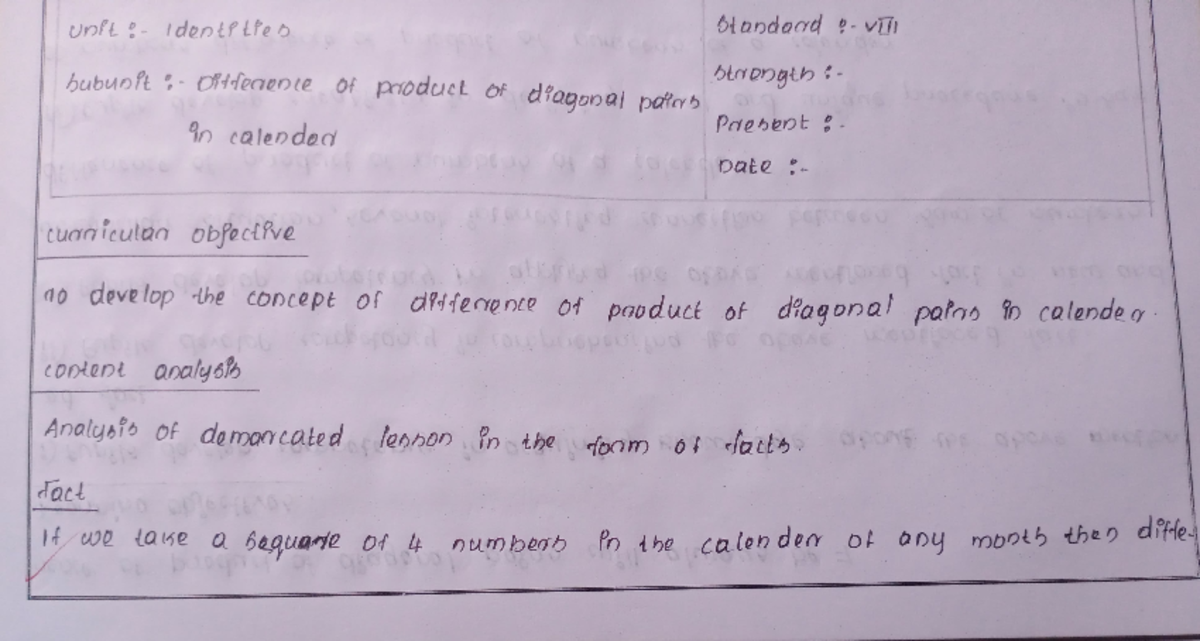 Unit :- Identities
Subunit :- Difference of product of diagonal pairs
in calender
Standard :- VIII
Strength :-
Present :-
Date :-
curricular objective
To develop the concept of difference of product of diagonal pairs in calender.
content analysis
Analysis of demarcated lesson in the form of facts.
Fact
If we take a sequare of 4 numbers in the calender of any month then diffe-